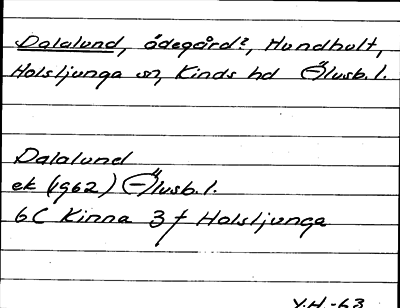 Dalalund, ödegård?, Hundhult,
Holsljunga sn, Kinds hd Älvsb. l.
Dalalund
ek (1962) Älvsb. l.
6C Kinna 3 f Holsljunga
Y.H.-63